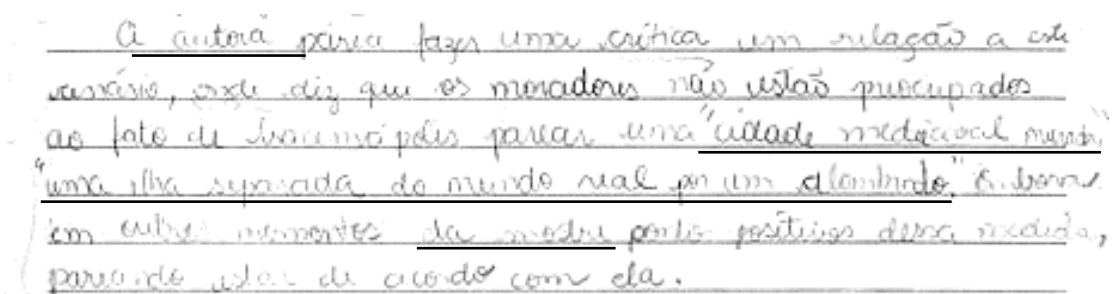 A autora parece fazer uma crítica em relação a este
cenário, onde diz que os moradores não estão preocupados
ao fato de parecer uma "cidade medieval murada,"
"uma ilha separada do mundo real por um alambrado." Embora
em outros momentos ela mostre pontos positivos dessa medida,
parecendo estar de acordo com ela.